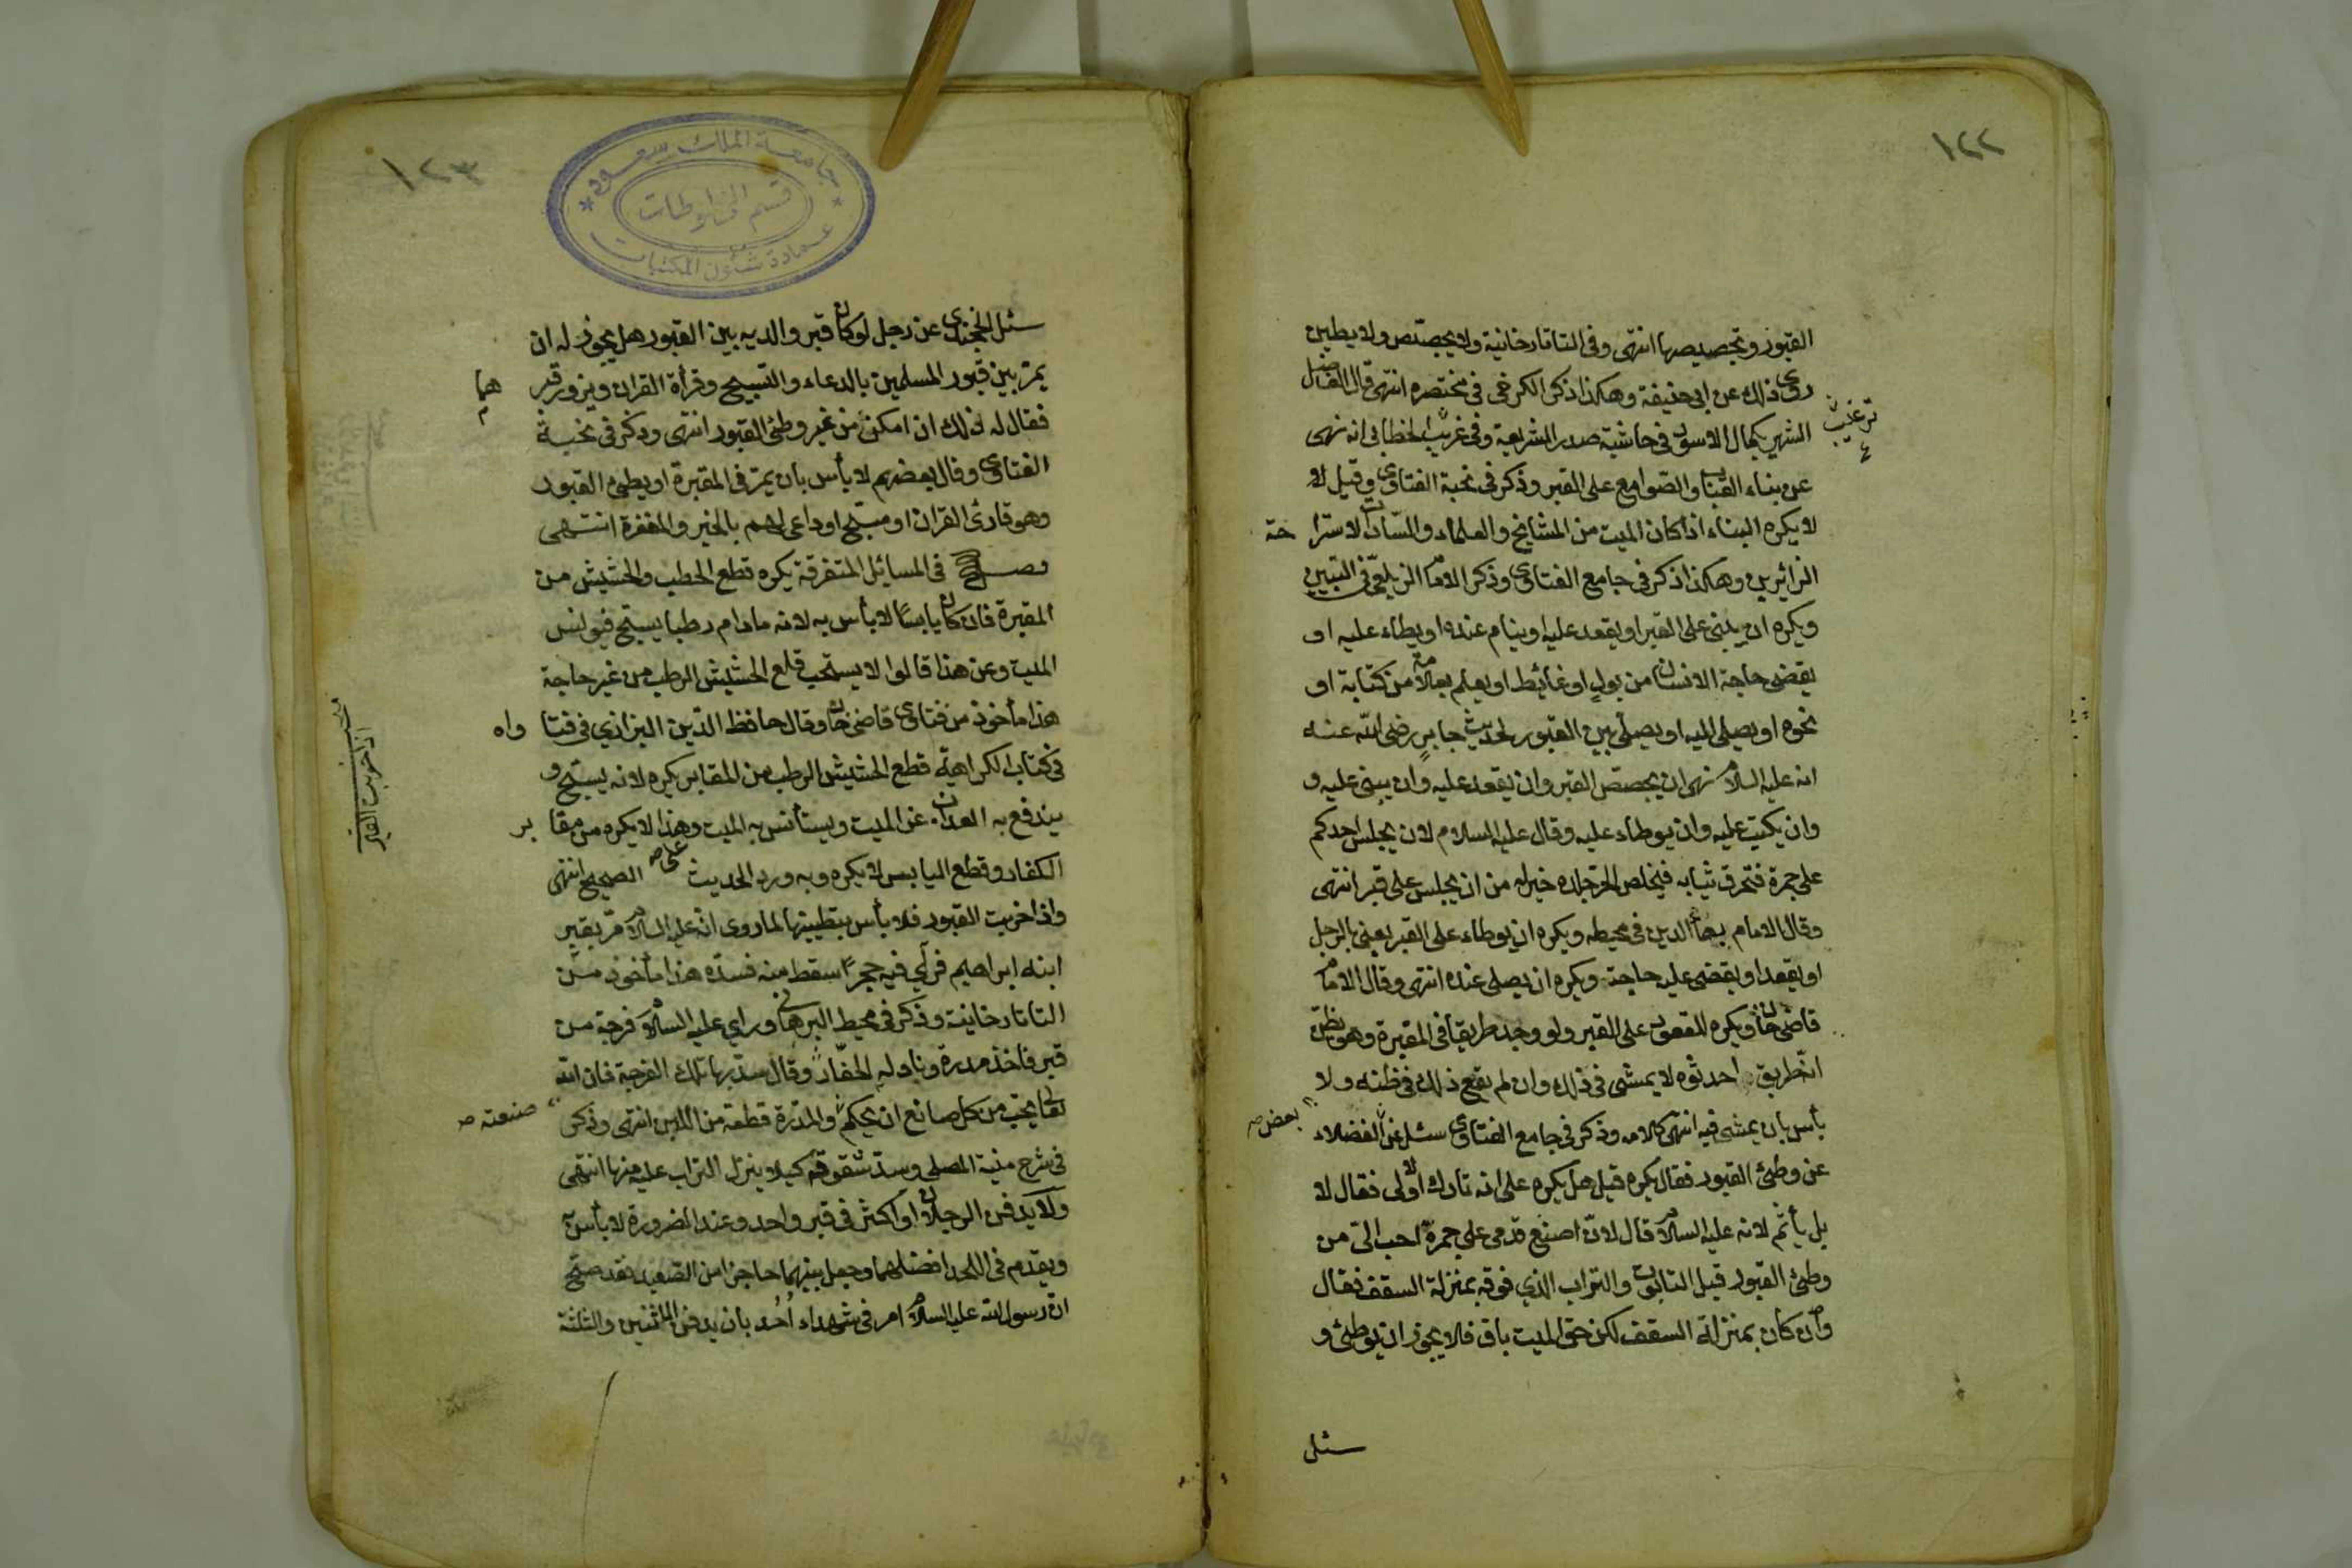 ١٢٢
القبور وتجصيصها انتهى وفى التاتارخانية ولا يجصّص ولا يطين
روى ذلك عن ابى حنيفة وهكذا ذكر الكرخى فى مختصره انتهى قال الفاضل
الشهير بكمال الاسود فى حاشية صدر الشريعة وفى غريب الخطابى انه نهى
عن بناء القباب والصّوامع على القبر وذكر فى نخبة الفتاوى وقيل لا
لا يكره البناء اذا كان الميت من المشايخ والعلماء والسّادات لاستراحة
الزائرين وهكذا ذكر فى جامع الفتاوى وذكر الامام الزيلعى فى التبيين
ويكره ان يبنى على القبر او يقعد عليه او ينام عنده او يطاء عليه او
يقضى حاجة الانسان من بول او غائط او يعلم بعلامة من كتابة او
نحوه او يصلى اليه او يصلى بين القبور لحديث جابر رضى الله عنه
انه عليه السلام نهى ان يجصّص القبر وان يقعد عليه وان يبنى عليه و
وان يكتب عليه وان يوطاء عليه وقال عليه السلام لان يجلس احدكم
على جمرة فتحرق ثيابه فيخلص الى جلده خير له من ان يجلس على قبر انتهى
وقال الامام برهان الدين فى محيطه ويكره ان يوطاء على القبر يعنى بالرجل
او يقعد او يقضى عليه حاجة ويكره ان يصلى عنده انتهى وقال الامام
قاضى خان ويكره القعود على القبر ولو وجد طريقا فى المقبرة وهو يظن
انه طريق احدثوه لا يمشى فى ذلك وان لم يقع ذلك فى ظنه ولا
بأس بان يمشى فيه انتهى كلامه وذكر فى جامع الفتاوى سئل عن الفضلاء
بعض صح
عن وطئ القبور فقال يكره قيل هل يكره على انه تارك الاولى فقال لا
بل يأثم لانه عليه السلام قال لان اضع قدمى على جمرة احب الىّ من
وطئ القبور قيل التابوت والتراب الذي فوقه بمنزلة السقف فقال
وان كان بمنزلة السقف لكن حق الميت باق فلا يجوز ان يوطئ و
سئل
١٢٣
جامعة الملك سعود
قسم المخطوطات
عمادة شئون المكتبات
سئل الخجندى عن رجل لو كان قبر والديه بين القبور هل يجوز له ان
يمرّ بين قبور المسلمين بالدعاء والتسبيح وقرأة القران ويزور قبرهما
فقال له ذلك ان امكن من غير وطئ القبور انتهى وذكر فى نخبة
الفتاوى وقال بعضهم لا بأس بان يمرّ فى المقبرة او يطئ القبور
وهو قارئ القران او مسبّح او داعى لهم بالخير والمغفرة انتهى
فصل فى المسائل المتفرقة يكره قطع الحطب والحشيش من
المقبرة فان كان يابسًا لا بأس به لانه مادام رطبا يسبّح فيونس
الميت وعن هذا قالوا لا يستحب قلع الحشيش الرطب من غير حاجة
هذا مأخوذ من فتاوى قاضى خان وقال حافظ الدّين البزازي فى فتاواه
فى كتاب الكراهية قطع الحشيش الرطب من المقابر يكره لانه يسبّح و
يندفع به العذاب عن الميت ويستأنس به الميت وهذا لا يكره من مقابر
الكفار وقطع اليابس لا يكره وبه ورد الحديث على صح الصحيح انتهى
واذا خربت القبور فلا بأس بتطيينها لما روى انّه عليه السلام مرّ بقبر
ابنه ابراهيم فرأي فيه حجرًا سقط منه فسدّه هذا مأخوذ من
التاتارخانية وذكر فى محيط البرهانى وراي عليه السلام فرجة من
قبر فاخذ مدرة وناوله الحفّار وقال سدّ بها تلك الفرجة فان الله
تعالى يحب من كل صانع ان يحكم والمدرة قطعة من اللبن انتهى وذكر
صنعته صح
فى شرح منية المصلى وسدّ شقوقه كيلا ينزل التراب عليه منها انتهى
ولا يدفن الرجلان او اكثر فى قبر واحد وعند الضرورة لا بأس
ويقدم فى اللحد افضلهما وجعل بينهما حاجزا من الصّعيد فقد صحّ
ان رسول الله عليه السلام امر فى شهداء اُحُد بان يدفن الاثنين والثلثة